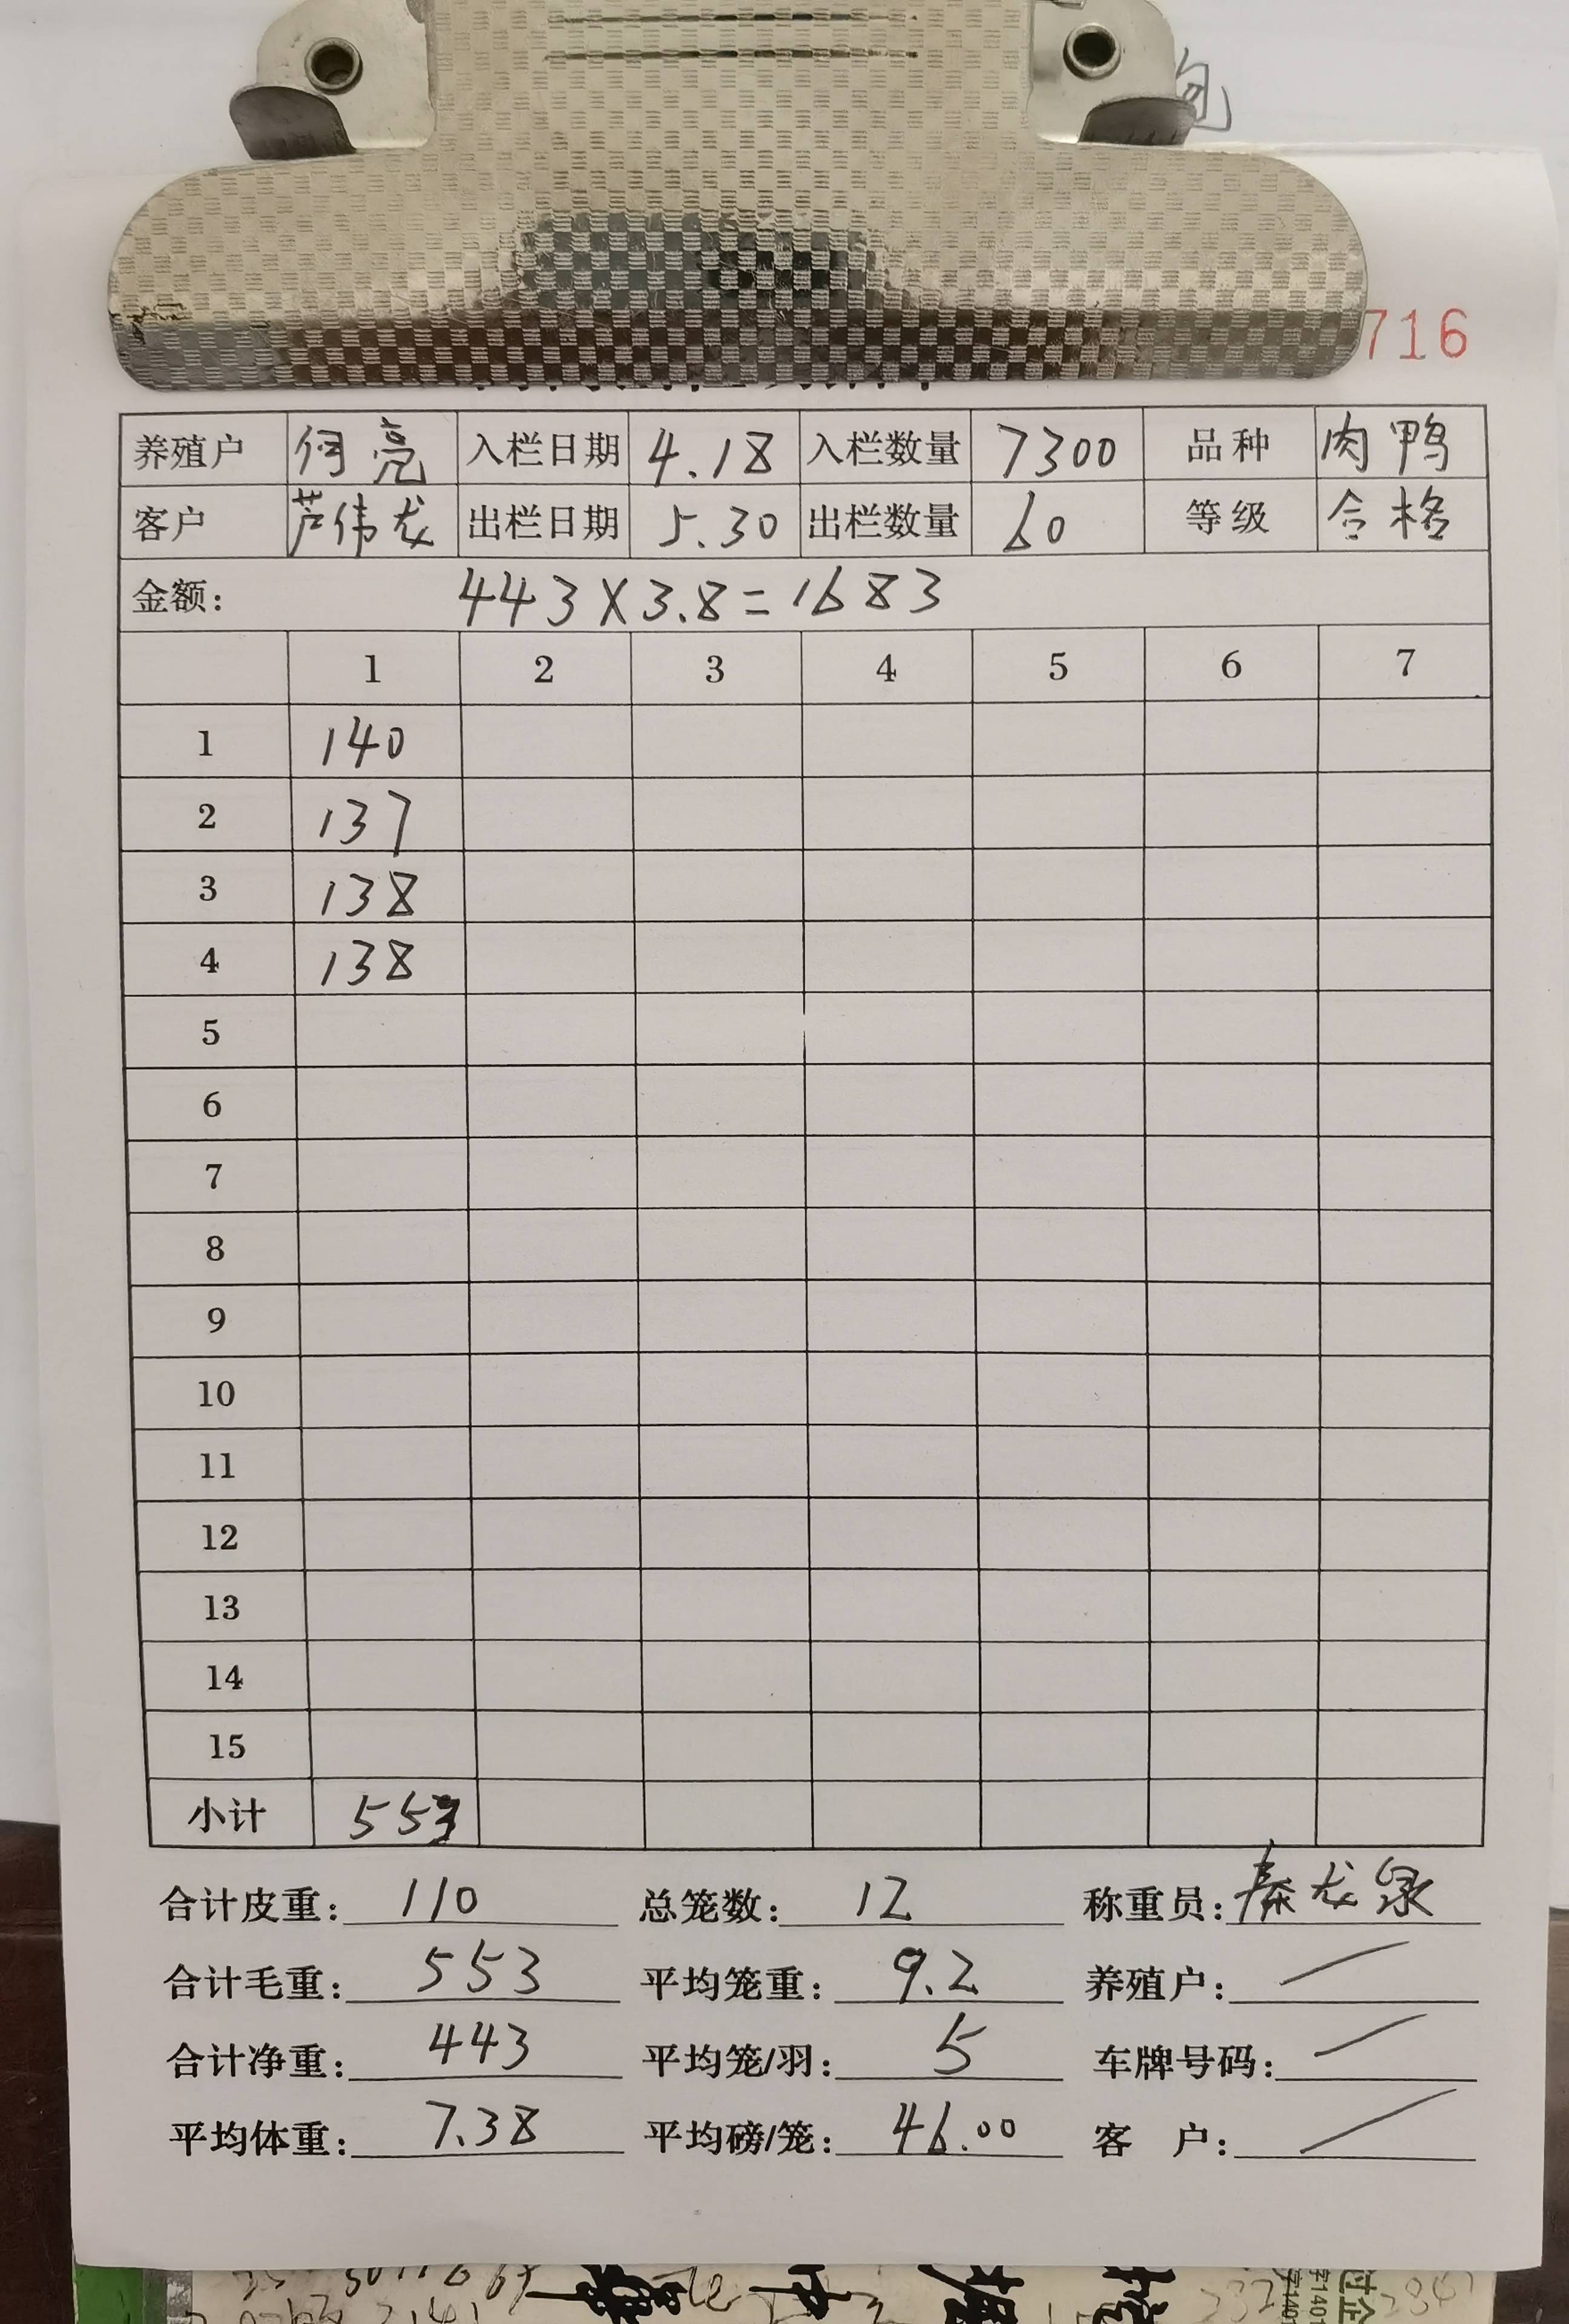 716
养殖户 何亮 入栏日期 4.18 入栏数量 7300 品种 肉鸭
客户 芦伟龙 出栏日期 5.30 出栏数量 60 等级 合格
金额: 443×3.8=1683
1 2 3 4 5 6 7
1 140
2 137
3 138
4 138
5
6
7
8
9
10
11
12
13
14
15
小计 553
合计皮重: 110 总笼数: 12 称重员: 秦龙泉
合计毛重: 553 平均笼重: 9.2 养殖户: /
合计净重: 443 平均笼/羽: 5 车牌号码: /
平均体重: 7.38 平均磅/笼: 46.00 客 户: /